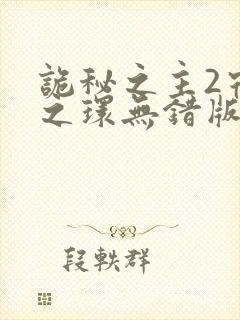 詭秘之主2
之環無錯版
段軼群